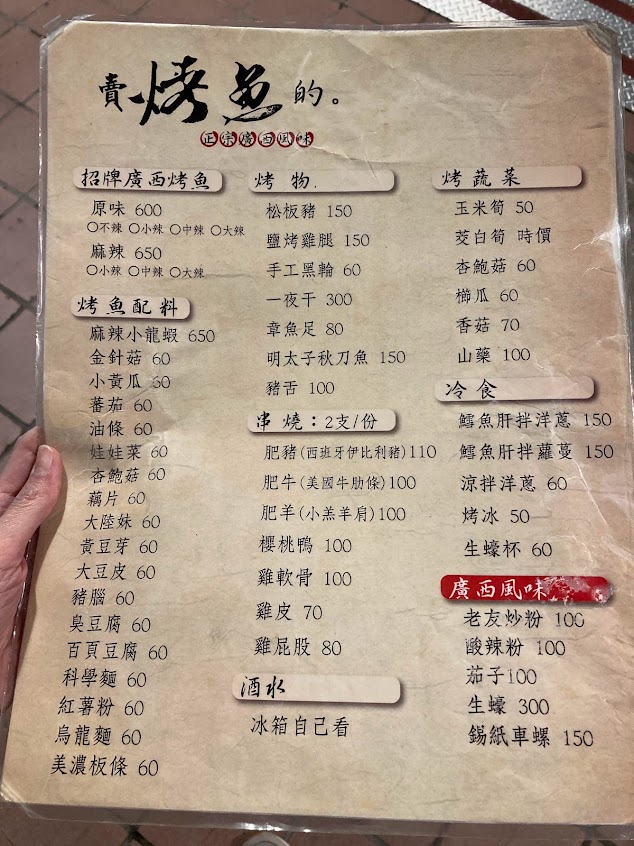 賣烤魚的。
正宗廣西風味
招牌廣西烤魚
原味 600
○不辣 ○小辣 ○中辣 ○大辣
麻辣 650
○小辣 ○中辣 ○大辣
烤魚配料
麻辣小龍蝦 650
金針菇 60
小黃瓜 60
蕃茄 60
油條 60
娃娃菜 60
杏鮑菇 60
藕片 60
大陸妹 60
黃豆芽 60
大豆皮 60
豬腦 60
臭豆腐 60
百頁豆腐 60
科學麵 60
紅薯粉 60
烏龍麵 60
美濃板條 60
烤物.
松板豬 150
鹽烤雞腿 150
手工黑輪 60
一夜干 300
章魚足 80
明太子秋刀魚 150
豬舌 100
串燒：2支/份
肥豬(西班牙伊比利豬)110
肥牛(美國牛肋條)100
肥羊(小羔羊肩)100
櫻桃鴨 100
雞軟骨 100
雞皮 70
雞屁股 80
酒水
冰箱自己看
烤蔬菜
玉米筍 50
茭白筍 時價
杏鮑菇 60
櫛瓜 60
香菇 70
山藥 100
冷食
鱈魚肝拌洋蔥 150
鱈魚肝拌蘿蔓 150
涼拌洋蔥 60
烤冰 50
生蠔杯 60
廣西風味
老友炒粉 100
酸辣粉 100
茄子100
生蠔 300
錫紙車螺 150